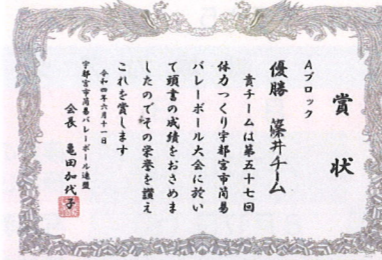 賞状
Aブロック
優勝 簗井チーム
貴チームは第五十七回
体力つくり宇都宮市簡易
バレーボール大会に於い
て頭書の成績をおさめま
したのでその栄誉を讃え
これを賞します
令和四年六月十一日
宇都宮市簡易バレーボール連盟
会長 亀田加代子